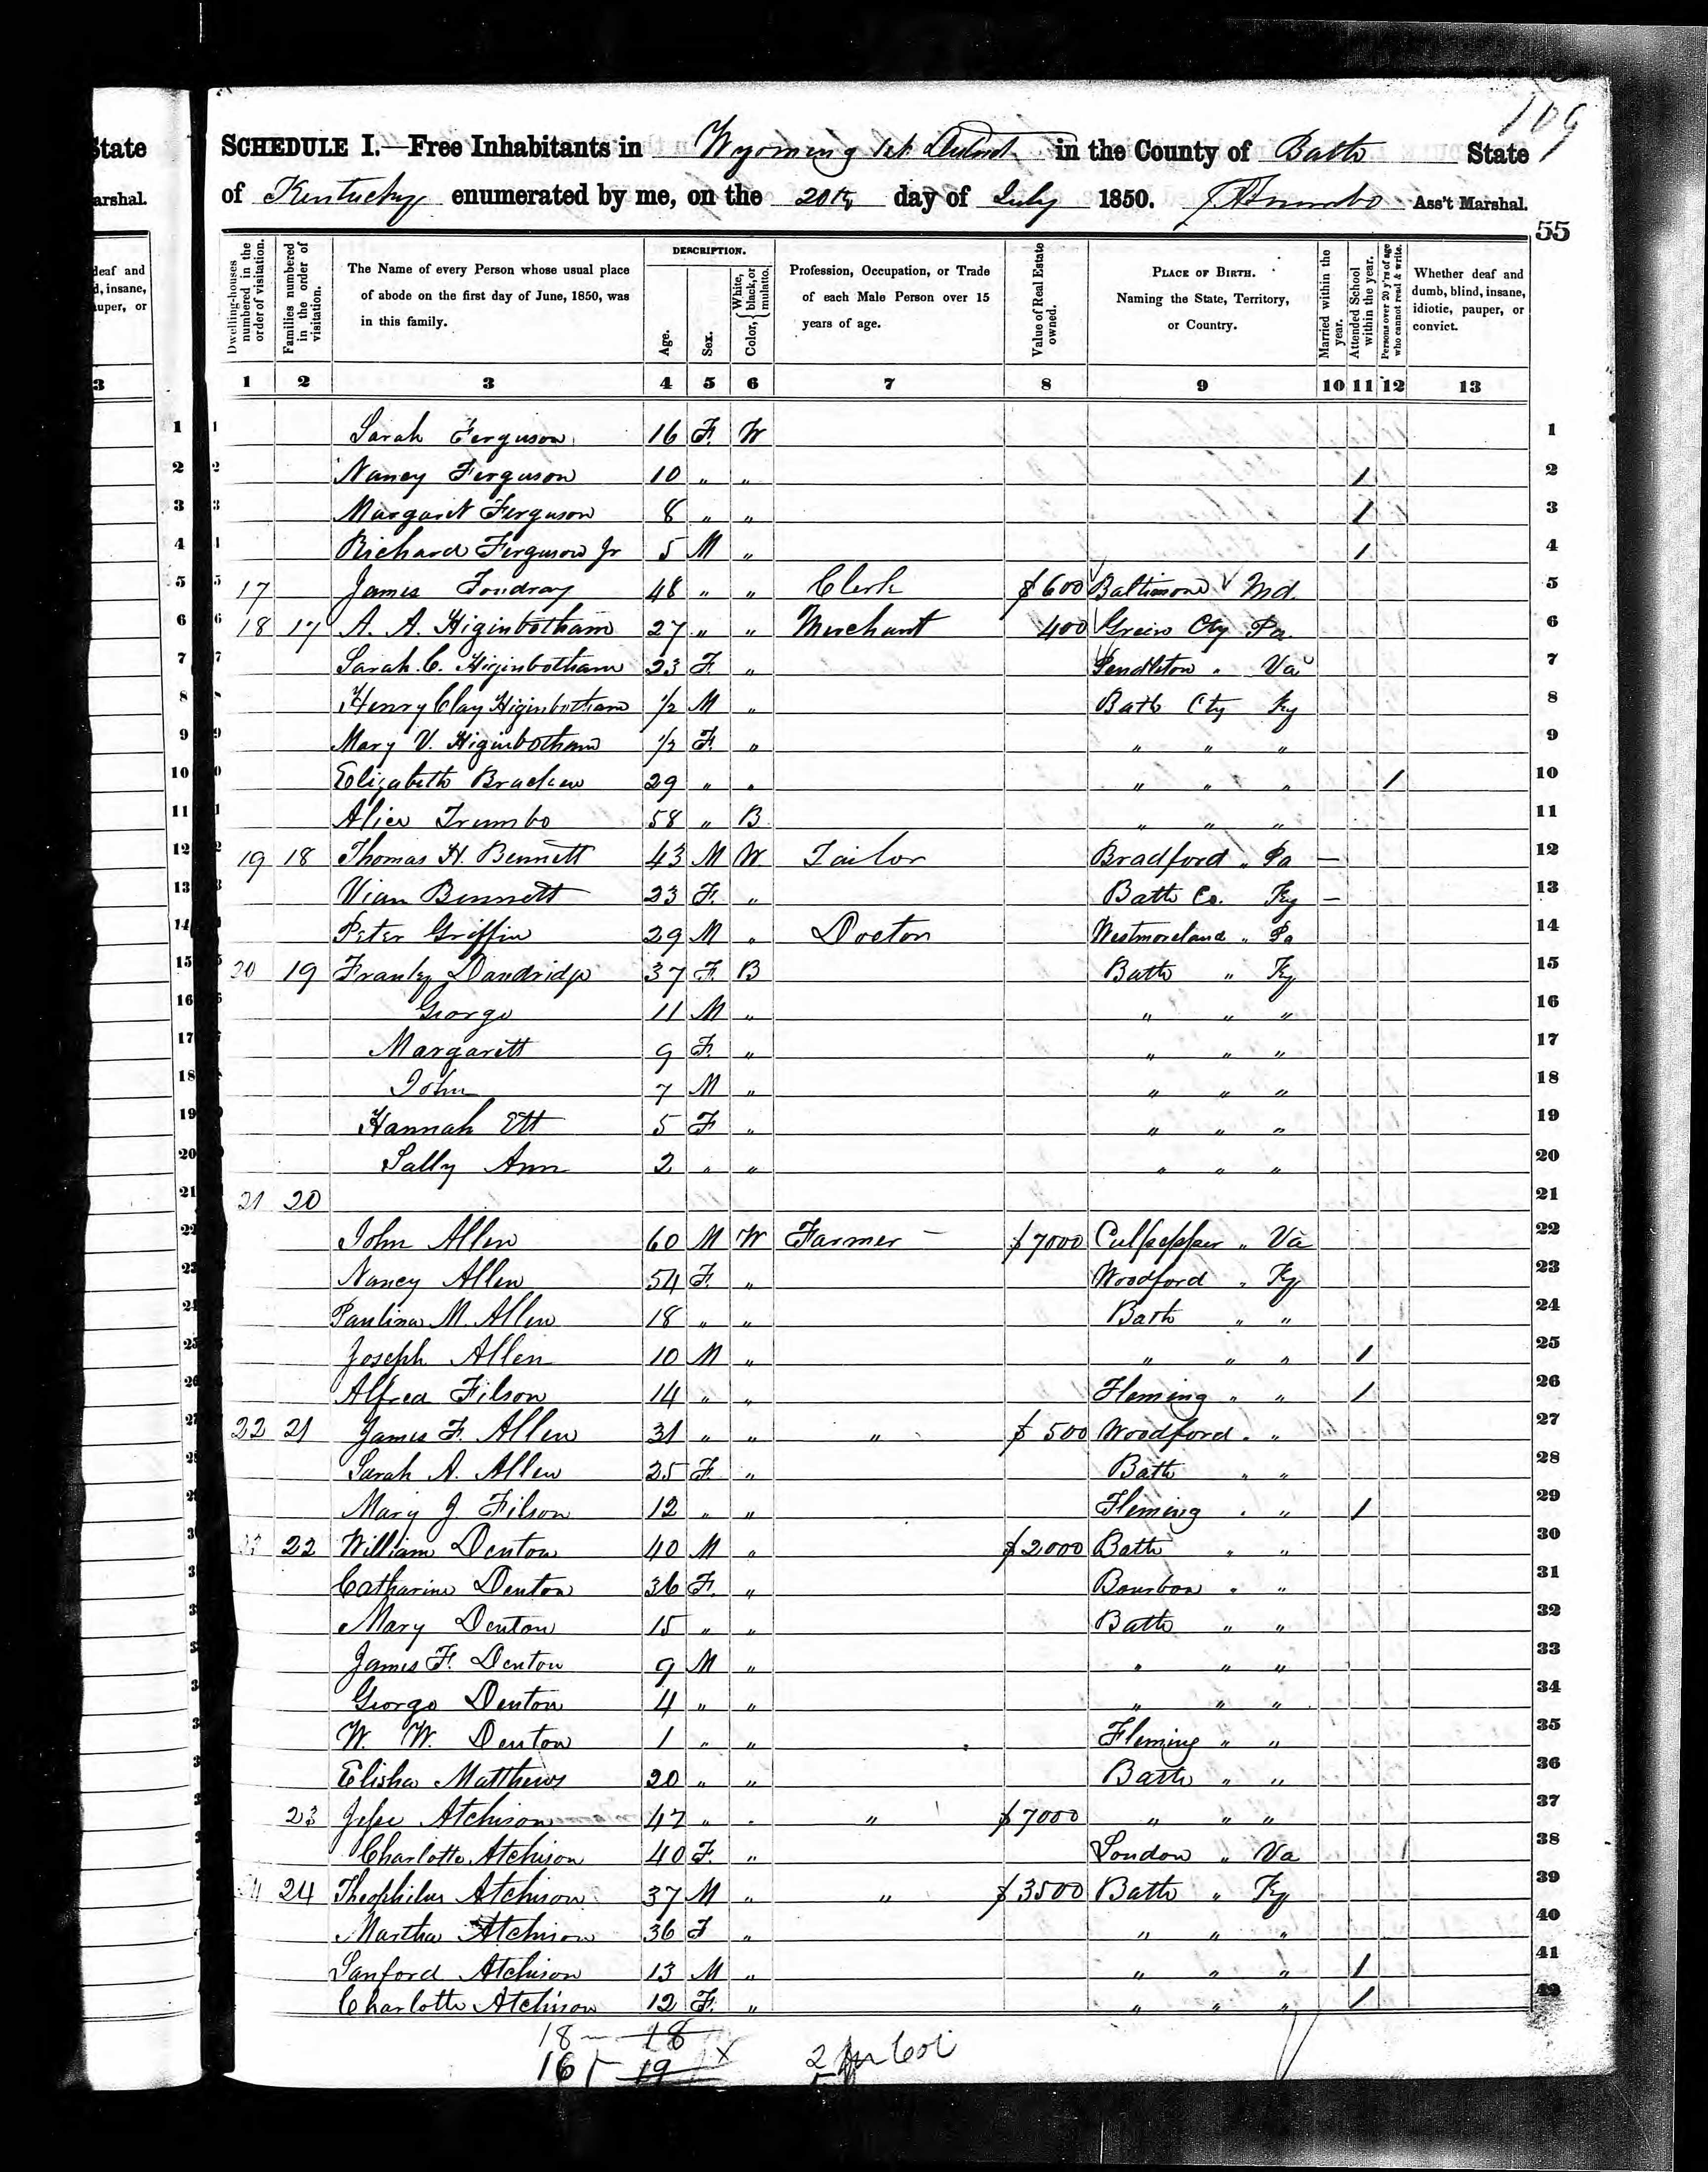 109
State
arshal.
deaf and
d, insane,
auper, or
3
SCHEDULE I.—Free Inhabitants in Wyoming 1st District in the County of Bath State
of Kentucky enumerated by me, on the 20th day of July 1850. J. A. Trumbo Ass't Marshal.
55
Dwelling-houses numbered in the order of visitation.
Families numbered in the order of visitation.
The Name of every Person whose usual place of abode on the first day of June, 1850, was in this family.
DESCRIPTION.
Age.
Sex.
Color, { White, black, or mulatto.
Profession, Occupation, or Trade of each Male Person over 15 years of age.
Value of Real Estate owned.
PLACE OF BIRTH. Naming the State, Territory, or Country.
Married within the year.
Attended School within the year.
Persons over 20 y'rs of age who cannot read & write.
Whether deaf and dumb, blind, insane, idiotic, pauper, or convict.
1 2 3 4 5 6 7 8 9 10 11 12 13
1 Sarah Ferguson 16 F. W 1
2 Nancy Ferguson 10 " " 1 2
3 Margaret Ferguson 8 " " 1 3
4 Richard Ferguson Jr 5 M " 1 4
5 17 James Fondray 48 " " Clerk $600 Baltimore Md. 5
6 18 17 A. A. Higinbotham 27 " " Merchant 400 Green Cty Pa. 6
7 Sarah C. Higinbotham 23 F. " Pendleton " Va 7
8 Henry Clay Higinbotham 1/2 M " Bath Cty Ky 8
9 Mary V. Higinbotham 1/2 F. " " " " 9
10 Elizabeth Bracken 29 " " " " " 1 10
11 Alice Trumbo 58 " B " " " 11
12 19 18 Thomas H. Bennett 43 M W. Tailor Bradford " Pa — 12
13 Vian Bennett 23 F. " Bath Co. Ky — 13
14 Peter Griffin 29 M " Doctor Westmoreland " Pa 14
15 20 19 Franky Dandridge 37 F. B Bath " Ky 15
16 George 11 M " " " " 16
17 Margarett 9 F. " " " " 17
18 John 7 M " " " " 18
19 Hannah Ett 5 F " " " " 19
20 Sally Ann 2 " " " " " 20
21 21 20 21
22 John Allen 60 M W Farmer — $7000 Culpepper " Va 22
23 Nancy Allen 54 F. " Woodford " Ky 23
24 Paulina M. Allen 18 " " Bath " " 24
25 Joseph Allen 10 M " " " " 1 25
26 Alfred Filson 14 " " Fleming " " 1 26
27 22 21 James F. Allen 31 " " " $500 Woodford " " 27
28 Sarah A. Allen 25 F " Bath " " 28
29 Mary J Filson 12 " " Fleming " " 1 29
30 23 22 William Denton 40 M " $2000 Bath " " 30
31 Catharine Denton 36 F. " Bourbon " " 31
32 Mary Denton 15 " " Bath " " 32
33 James F. Denton 9 M " " " " 33
34 George Denton 4 " " " " " 34
35 W. W. Denton 1 " " Fleming " " 35
36 Elisha Matthews 20 " " Bath " " 36
23 Jesse Atchison 47 " " " $7000 " " " 37
Charlotte Atchison 40 F. " Loudon " Va 38
24 24 Theophilus Atchison 37 M " " $3500 Bath " Ky 39
Martha Atchison 36 F " " " " 40
Sanford Atchison 13 M " " " " 1 41
Charlotte Atchison 12 F. " " " " 1 42
18 — 18
16 19 X
2